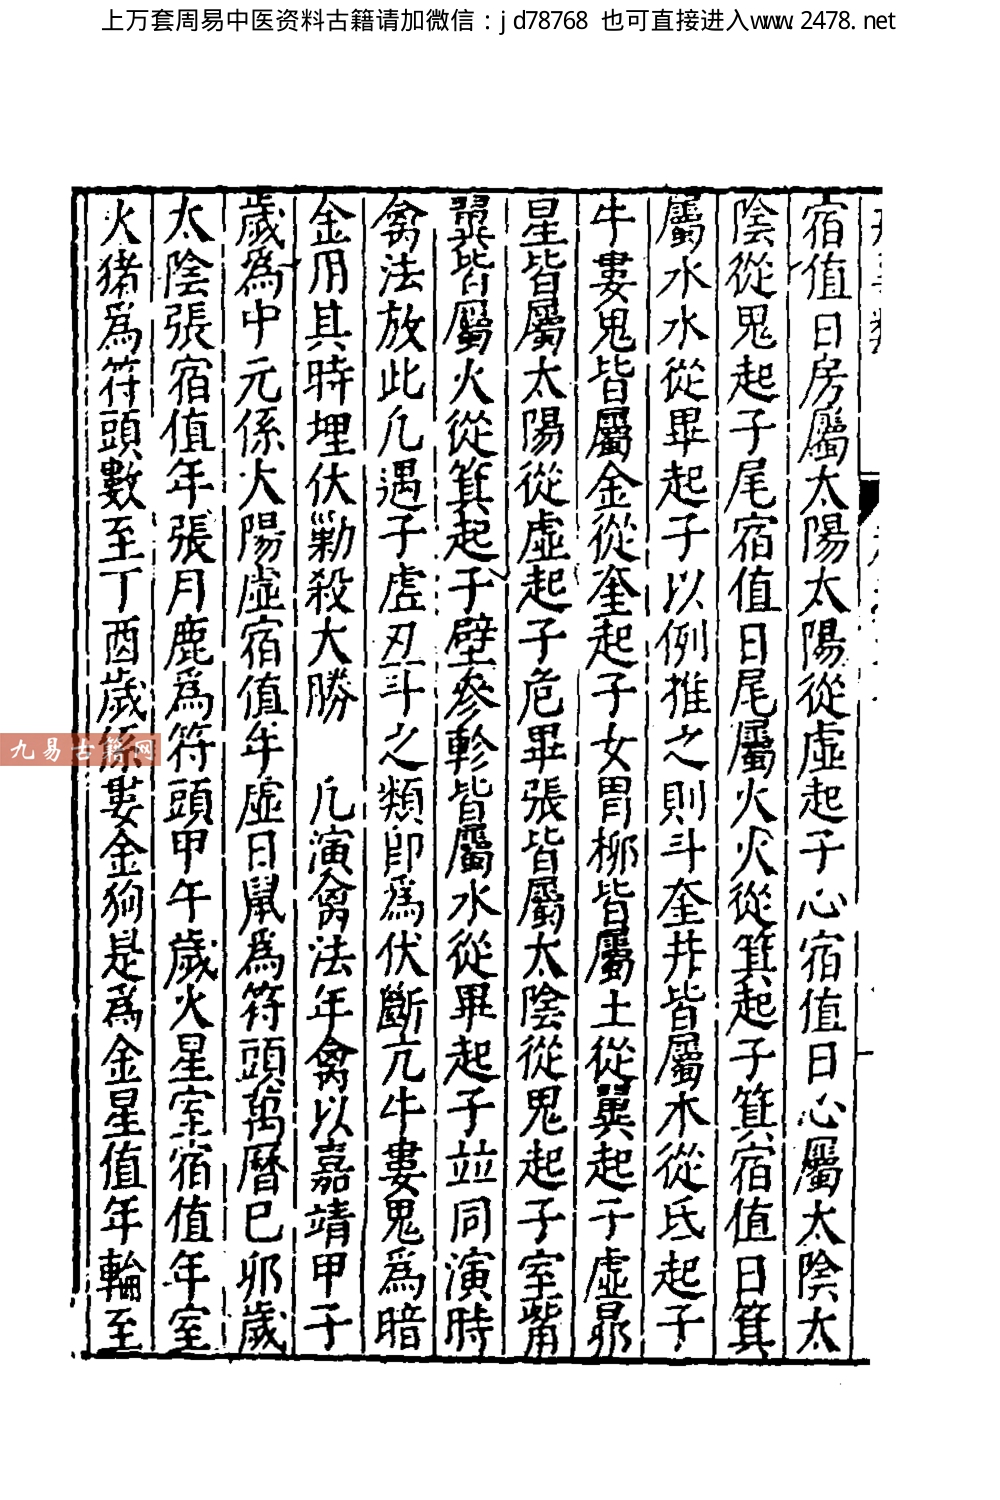 上万套周易中医资料古籍请加微信：jd78768 也可直接进入www.2478.net
宿值日房屬太陽太陽從虛起子心宿值日心屬太陰太
陰從鬼起子尾宿值日尾屬火火從箕起子箕宿值日箕
屬水水從畢起子以例推之則斗奎井皆屬木從氐起子
牛婁鬼皆屬金從奎起子女胃柳皆屬土從翼起子虛昴
星皆屬太陽從虛起子危畢張皆屬太陰從鬼起子室觜
翼皆屬火從箕起子壁參軫皆屬水從畢起子並同演時
禽法放此凡遇子虛丑斗之類即為伏斷亢牛婁鬼為暗
金用其時埋伏勦殺大勝　凡演禽法年禽以嘉靖甲子
歲為中元係大陽虛宿值年虛日鼠為符頭萬曆巳卯歲
太陰張宿值年張月鹿為符頭甲午歲火星室宿值年室
火猪為符頭數至丁酉歲係婁金狗是為金星值年輪至
九易古籍网